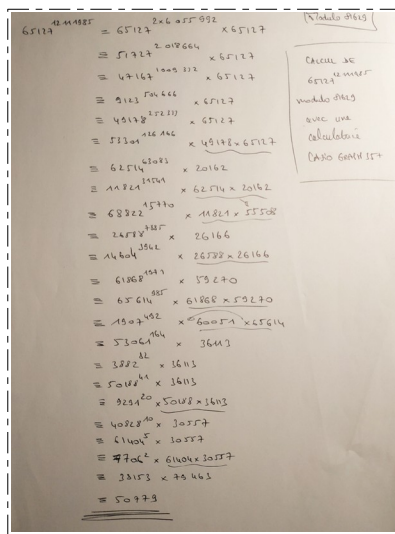 65127^12111985 ≡ 65127^2×6055992 × 65127
≡ 51727^2018664 × 65127
≡ 47167^1009332 × 65127
≡ 9123^504666 × 65127
≡ 49178^252333 × 65127
≡ 53301^126166 × 49178×65127
≡ 62514^63083 × 20162
≡ 11821^31541 × 62514 × 20162
≡ 68822^15770 × 11821 × 55508
≡ 26588^7885 × 26166
≡ 14604^3942 × 26588 × 26166
≡ 61868^1971 × 59270
≡ 65614^985 × 61868 × 59270
≡ 1907^492 × 60051 × 65614
≡ 53061^164 × 36113
≡ 3882^82 × 36113
≡ 50188^41 × 36113
≡ 9291^20 × 50188 × 36113
≡ 40828^10 × 30557
≡ 61404^5 × 30557
≡ 7706^2 × 61404 × 30557
≡ 38153 × 79463
≡ 50779
Modulo 81629
CALCUL DE
modulo 81629
avec une
calculatrice
CASIO GRAPH 35+